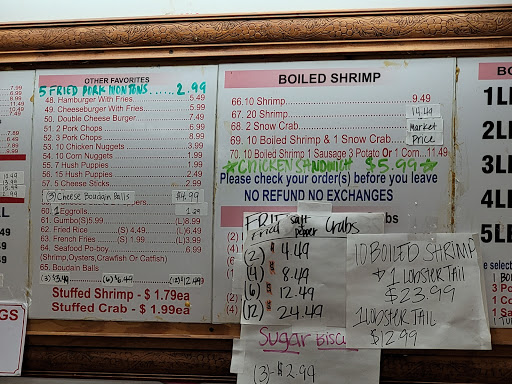 OTHER FAVORITES
5 FRIED PORK WONTONS..... 2.99
48. Hamburger With Fries 5.49
49. Cheeseburger With Fries 5.99
50. Double Cheese Burger 7.49
51. 2 Pork Chops 6.99
52. 3 Pork Chops 8.99
53. 10 Chicken Nuggets 3.99
54. 10 Corn Nuggets 1.99
55. 7 Hush Puppies 1.99
56. 15 Hush Puppies 2.49
57. 5 Cheese Sticks 2.99
(3) Cheese Boudain Balls $4.99
60. 1 Eggrolls 1.29
61. Gumbo(S)5.99 (L)8.99
62. Fried Rice (S) 4.49 (L)6.49
63. French Fries (S) 1.99 (L)3.99
64. Seafood Po-boy 6.99
(Shrimp,Oysters,Crawfish Or Catfish)
65. Boudain Balls
(3) $3.49 (6) $6.49 (12) $12.49
Stuffed Shrimp - $ 1.79ea
Stuffed Crab - $ 1.99ea
BOILED SHRIMP
66. 10 Shrimp 9.49
67. 20 Shrimp 14.49
68. 2 Snow Crab Market
69. 10 Boiled Shrimp & 1 Snow Crab Price
70. 10 Boiled Shrimp 1 Sausage 3 Potato Or 1 Corn 11.49
CHICKEN SANDWICH $5.99
Please check your order(s) before you leave
NO REFUND NO EXCHANGES
Fried Salt Pepper Crabs
(2) $ 4.49
(4) $ 8.49
(6) $ 12.49
(12) $ 24.49
Sugar
(3)-$2.99
10 BOILED SHRIMP
1 LOBSTER TAIL
$23.99
1 LOBSTER TAIL
$12.99
1L
2L
3L
4L
5L